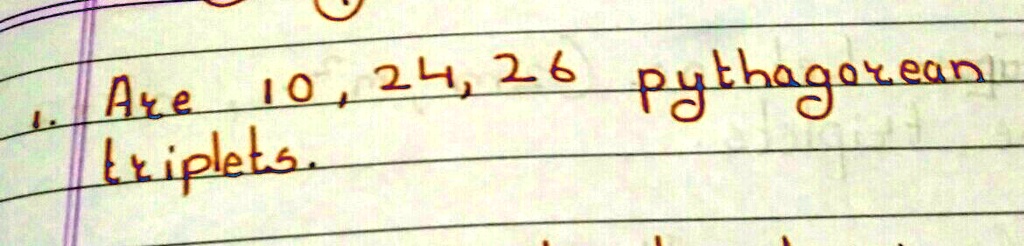 1. Are 10, 24, 26 pythagorean
triplets.